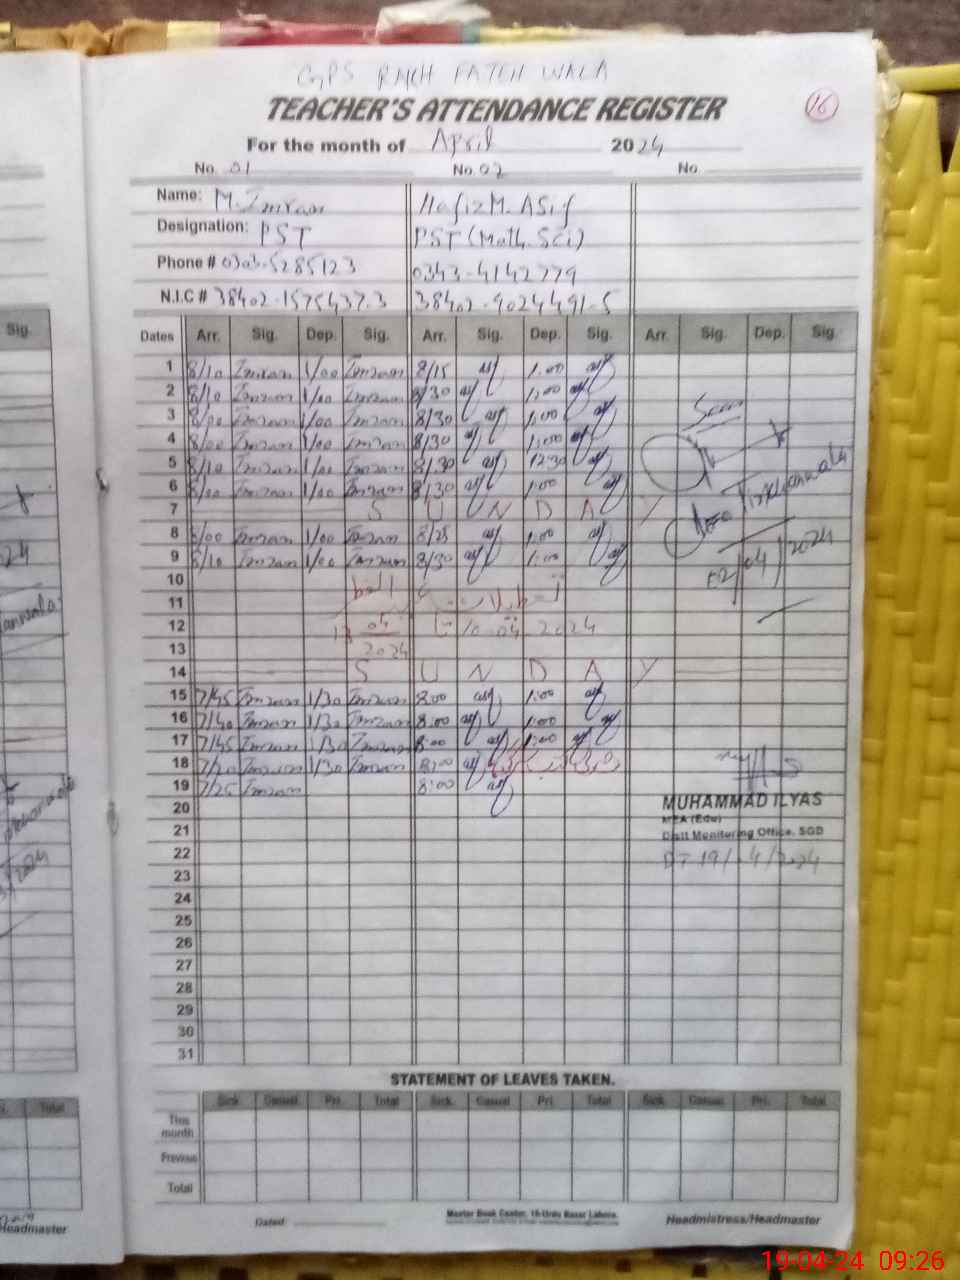 GPS RAKH FATEH WALA
TEACHER'S ATTENDANCE REGISTER
16
For the month of April 2024
No. 01 No. 02 No.
Name: M. Imran Hafiz M. ASif
Designation: PST PST (Math.Sci)
Phone # 0303-5285123 0343-4142779
N.I.C # 38402-1575437-3 38402-9024491-5
Sig. Dates Arr. Sig. Dep. Sig. Arr. Sig. Dep. Sig. Arr. Sig. Dep. Sig.
1 8/10 Imran 1/00 Imran 8/15 asif 1:00 asif
2 8/10 Imran 1/00 Imran 8/30 asif 1:00 asif
3 8/00 Imran 1/00 Imran 8/30 asif 1:00 asif
4 8/00 Imran 1/00 Imran 8/30 asif 1:00 asif
5 8/10 Imran 1/00 Imran 8/30 asif 12:30 asif
6 8/00 Imran 1/00 Imran 8/30 asif 1:00 asif
7 S U N D A Y
8 8/00 Imran 1/00 Imran 8/25 asif 1:00 asif
9 8/10 Imran 1/00 Imran 8/30 asif 1:00 asif
Seen
02/04/2024
10
11
12 04 10-04-2024
13 2024
14 S U N D A Y
15 7/45 Imran 1/30 Imran 8:00 asif 1:00 asif
16 7/40 Imran 1/30 Imran 8:00 asif 1:00 asif
17 7/45 Imran 1/30 Imran 8:00 asif 1:00 asif
18 7/20 Imran 1/30 Imran 8:00 asif
19 7/25 Imran 8:00 asif
MUHAMMAD ILYAS
MEA (Edu)
Distt Monitoring Office, SGD
DT 19/04/2024
20
21
22
23
24
25
26
27
28
29
30
31
STATEMENT OF LEAVES TAKEN.
Total Sick. Casual. Pri. Total Sick. Casual Pri. Total Sick. Casual. Pri. Total
This month
Previous
Total
Dated: Master Book Center, 16-Urdu Bazar Lahore. Headmistress/Headmaster
Headmaster
19-04-24 09:26